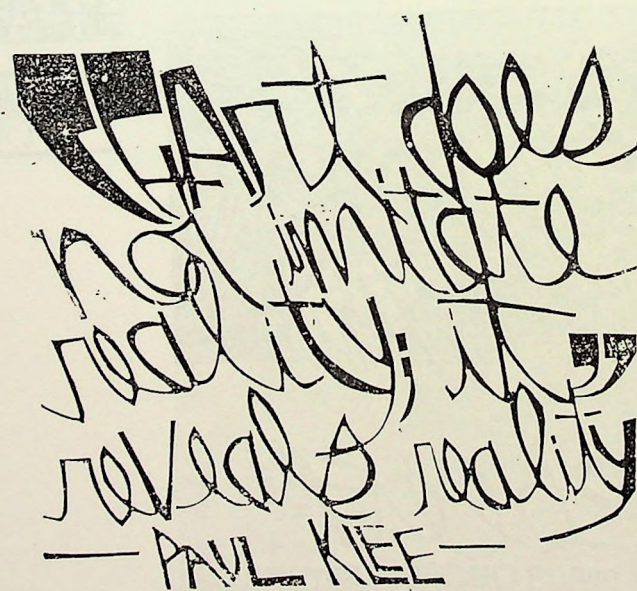 "Art does
not imitate
reality; it
reveals reality"
— PAUL KLEE —